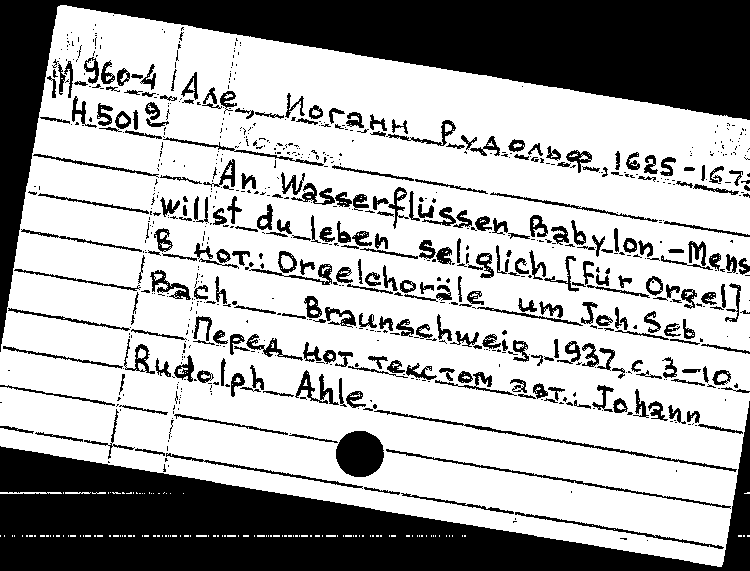 М 960-4 Але, Иоганн Рудольф, 1625-1673
Н.5019
Хорал:
An Wasserflüssen Babylon.-Mens
willst du leben seliglich. [Für Orgel]
В нот.: Orgelchoräle um Joh. Seb.
Bach. Braunschweig, 1937, с. 3-10.
Перед нот. текстом авт.: Johann
Rudolph Ahle.